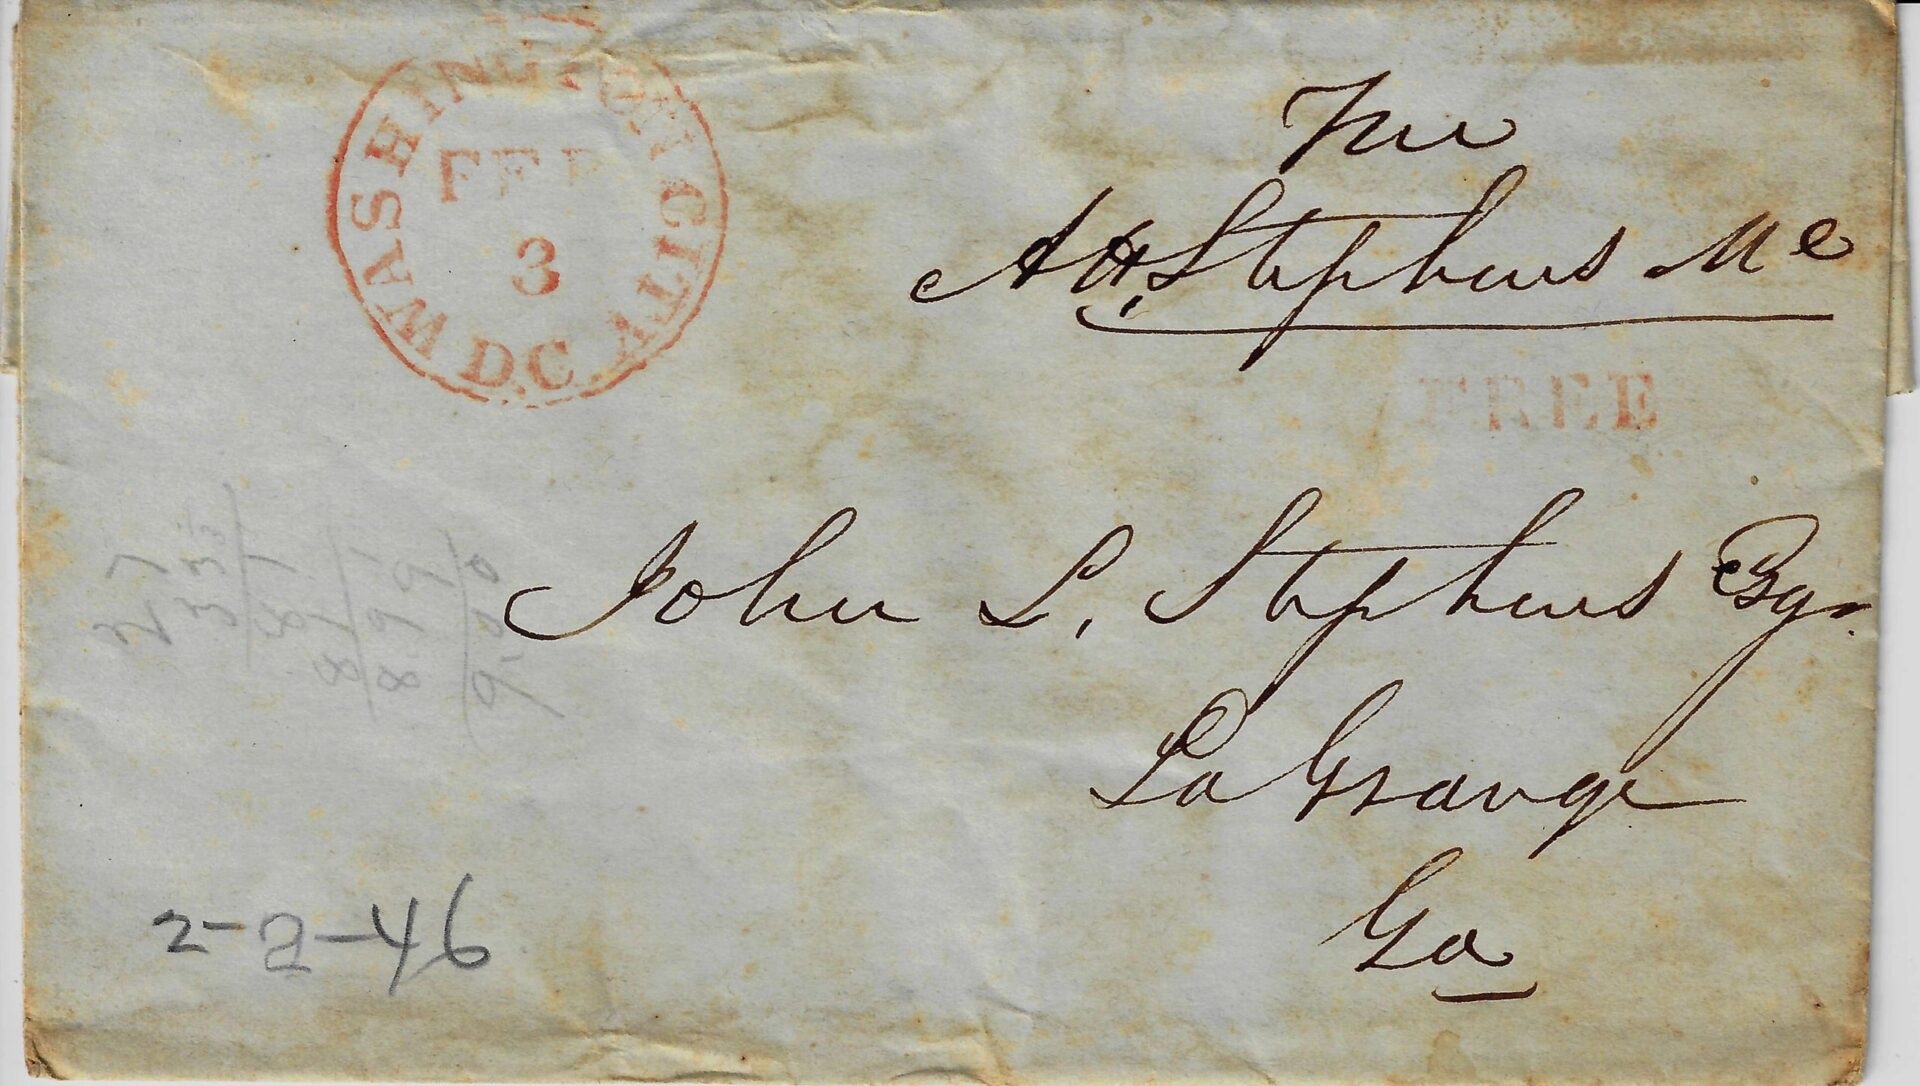 WASHINGTON CITY
FEB
3
D.C.
Free
A H. Stephens MC
FREE
John L. Stephens Esqr.
La Grange
Ga
2-2-46